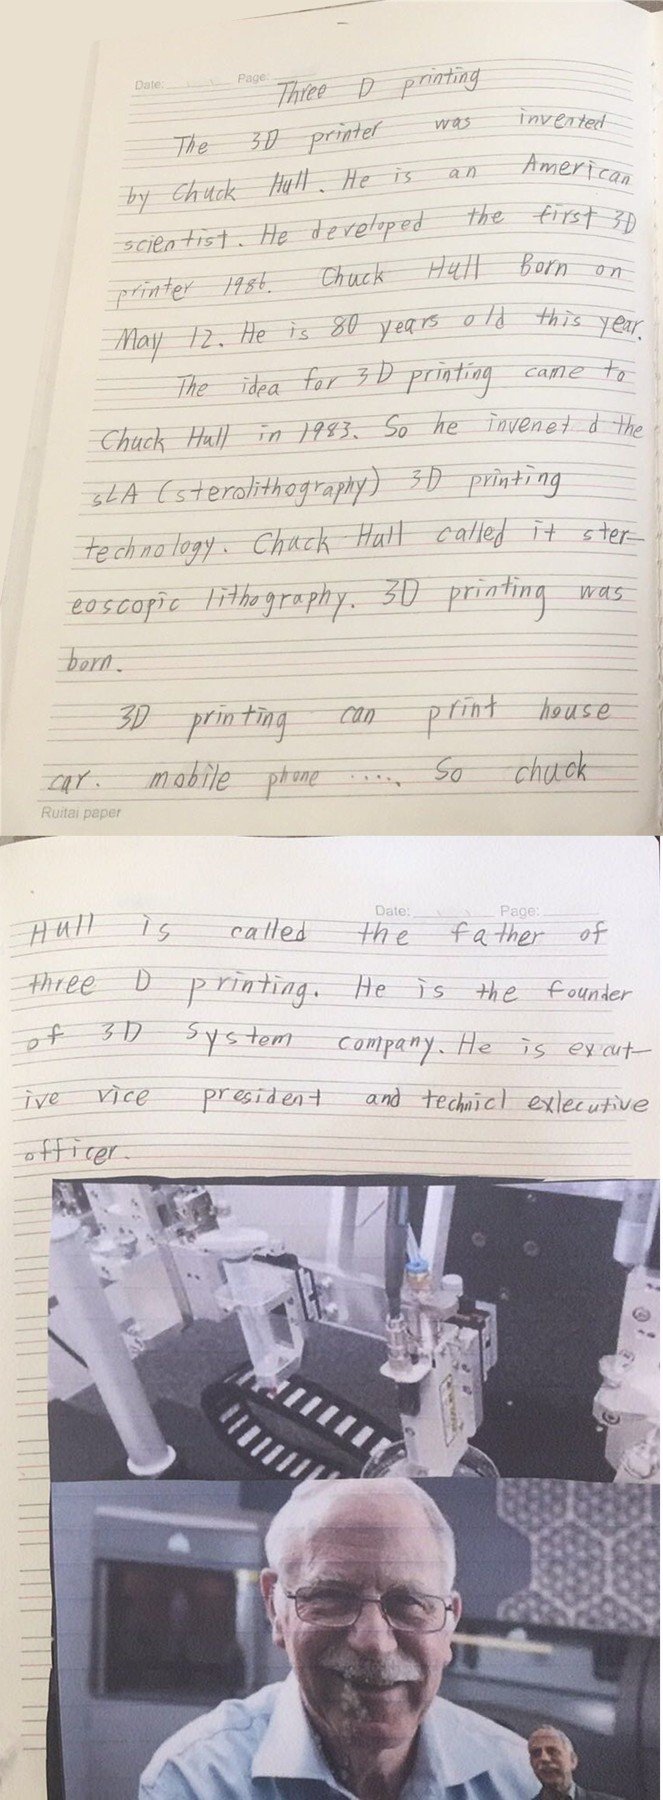 Date: Page:
Three D printing
The 3D printer was invented
by Chuck Hull. He is an American
scientist. He developed the first 3D
printer 1986. Chuck Hull Born on
May 12. He is 80 years old this year.
The idea for 3D printing came to
Chuck Hull in 1983. So he invenet d the
SLA (sterolithography) 3D printing
technology. Chuck Hull called it ster-
eoscopic lithography. 3D printing was
born.
3D printing can print house
car. mobile phone ..... So chuck
Ruitai paper
Date: Page:
Hull is called the father of
three D printing. He is the founder
of 3D System company. He is excut-
ive vice president and technicl exlecutive
officer.